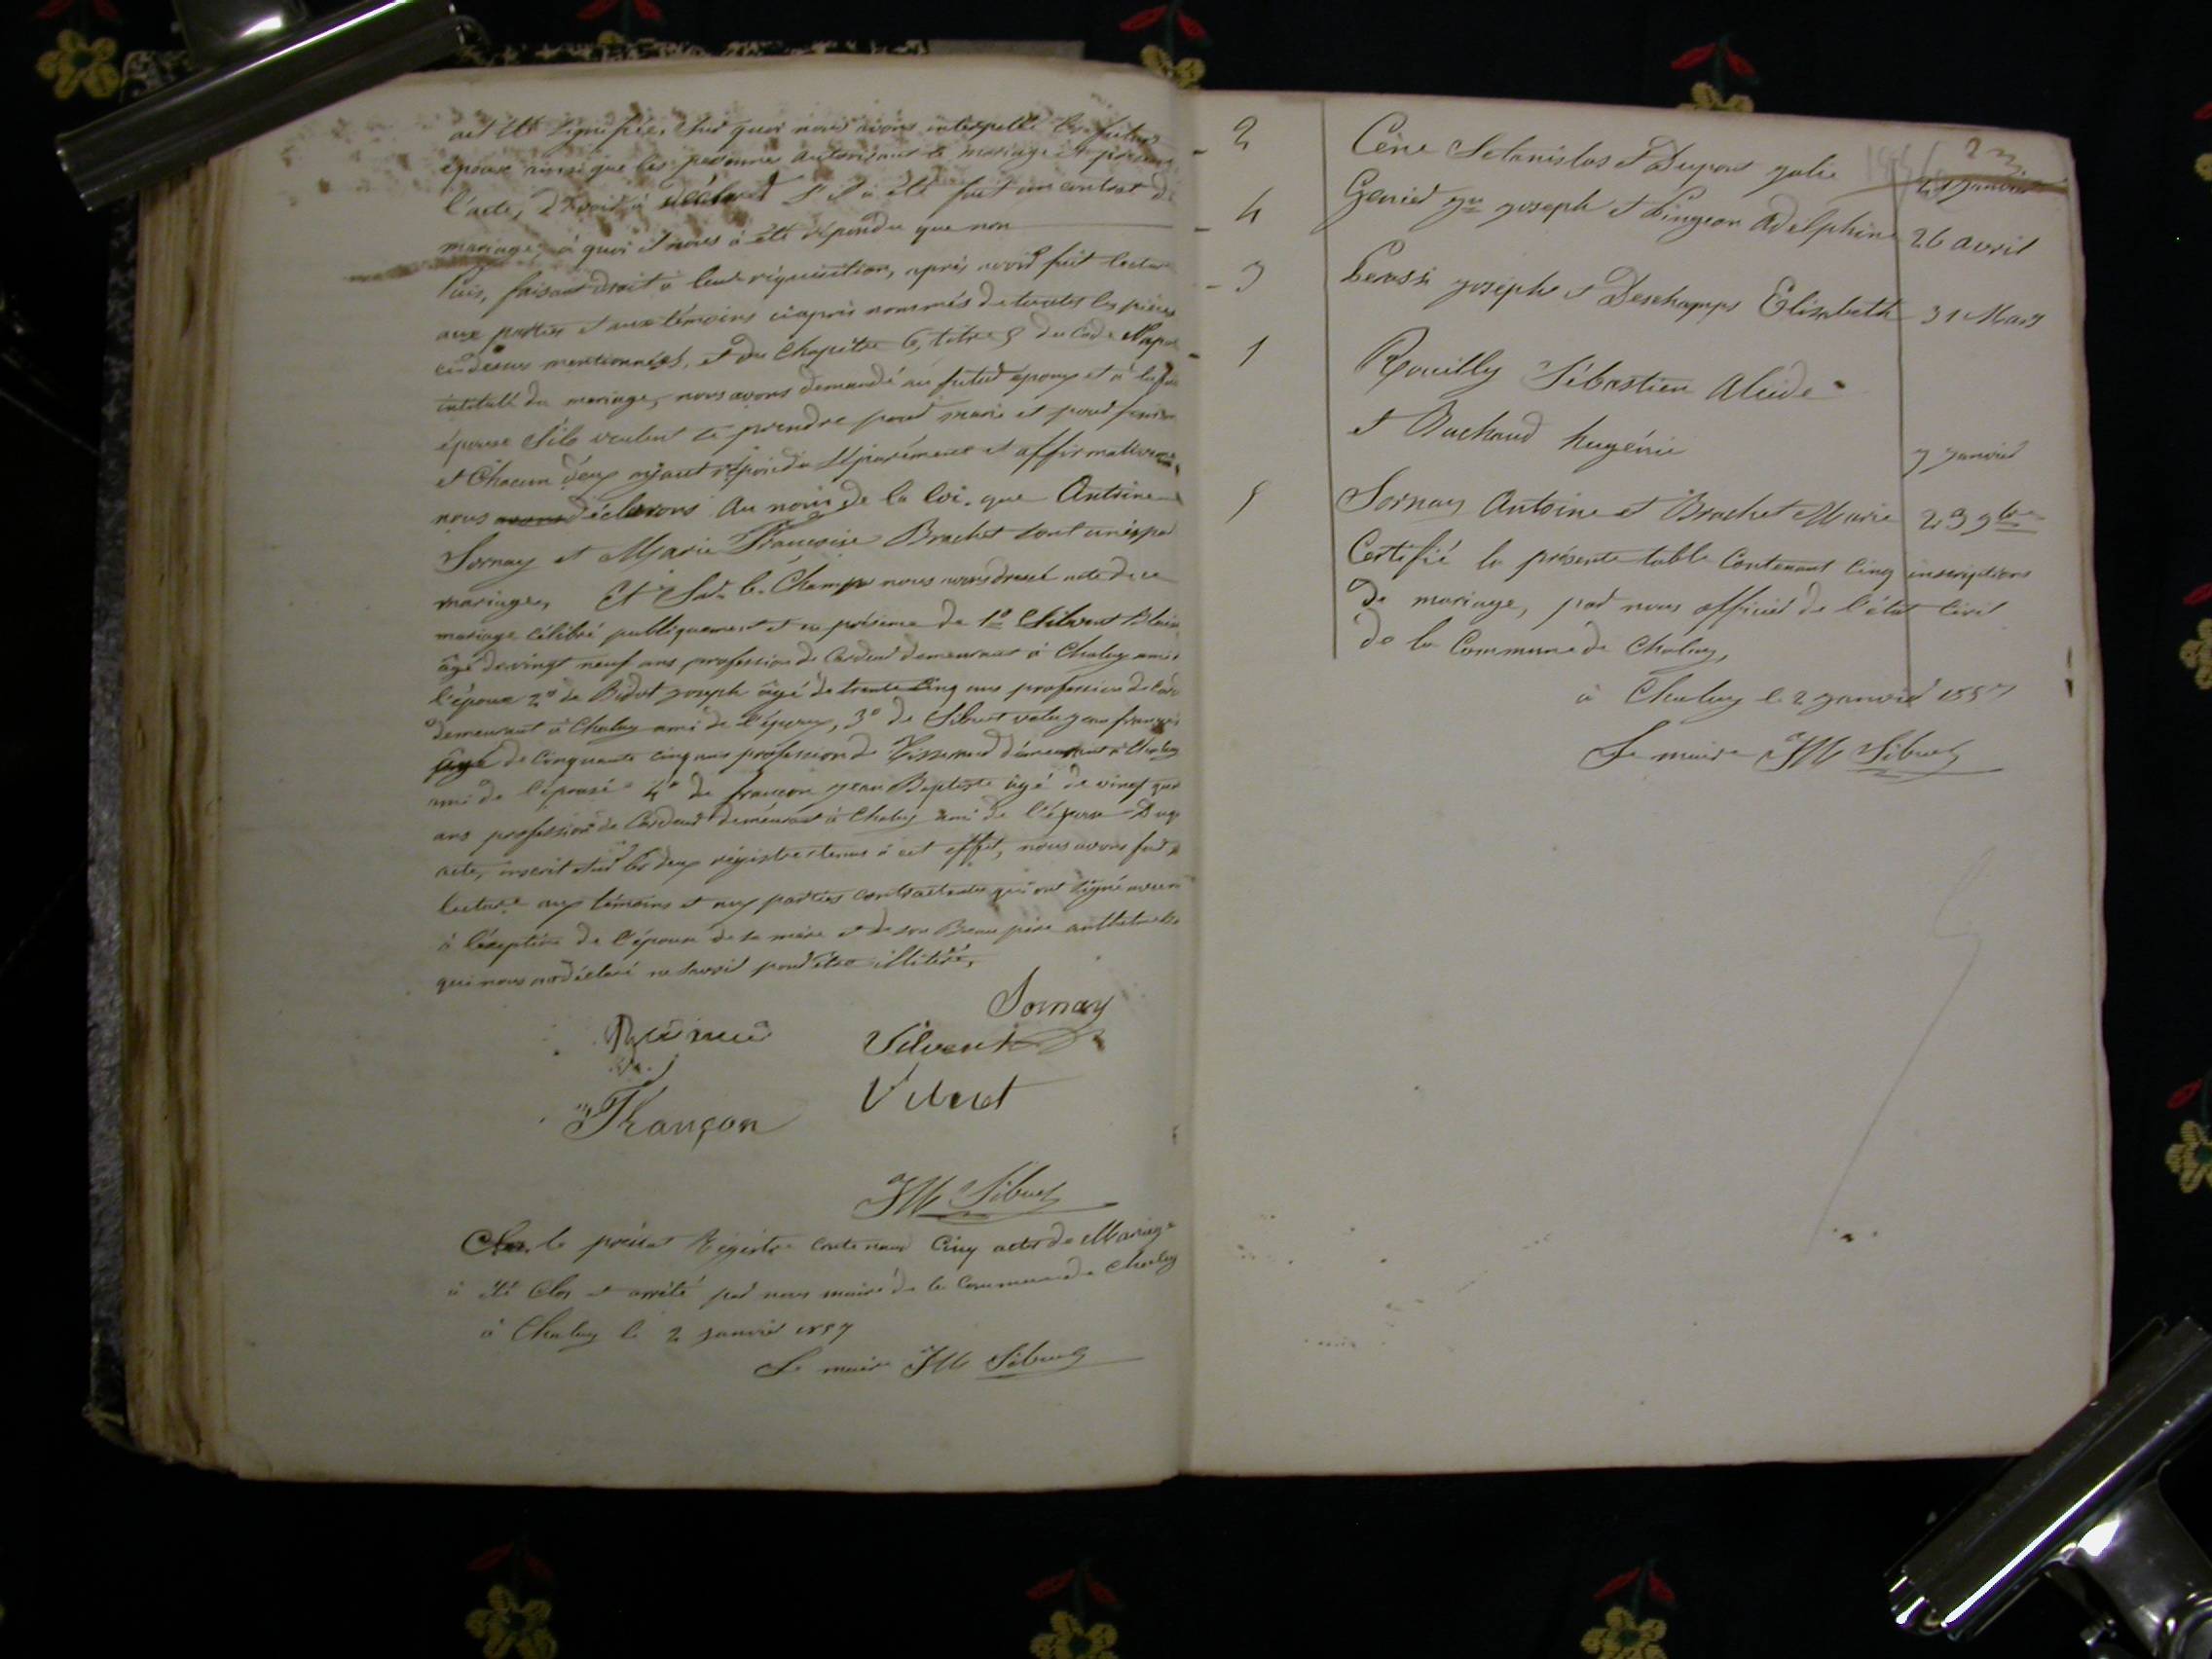 été signifiée, Sur quoi nous avons interpellé les futurs
époux ainsi que les personnes autorisant le mariage et présent
l'acte, d'avoir à déclarer s'il a été fait un contrat de
mariage, à quoi il nous à été répondu que non
Puis, faisant droit à leur réquisition, après avoir fait lecture
aux parties et aux témoins ciaprès nommés de toutes les pièces
cidessus mentionnées, et du Chapitre 6, titre 5 du Code Napo
intitulé du mariage, nous avons demandé au futur époux et à la
épouse s'ils veulent se prendre pour mari et pour femme
et Chacun d'eux ayant répondu séparément et affirmativement
nous déclarons Au nom de la loi. que Antoine
Sornay et Marie Françoise Brachet sont unis par
mariage, Et Sur le Champ nous avons dressé acte de ce
mariage célébré publiquement et en présence de 1º Silvent Blaise
âgé de vingt neuf ans profession de Cardeur demeurant à Chaley ami de
l'époux 2º de Bidot joseph âgé de trente Cinq ans profession de
demeurant à Chaley ami de l'époux, 3º de Sibuet jean françois
âgé de Cinquante cinq ans profession de Tisserand demeurant à Chaley
ami de l'épouse 4º de françon jean Baptiste âgé de vingt
ans profession de Cardeur demeurant à Chaley ami de l'épouse Duquel
acte, inscrit Sur les deux régistres tenus à cet effet, nous avons fait
lecture aux témoins et aux parties contractantes qui ont signé avec nous
à l'éxeption de l'épouse de sa mère et de son Beau père
qui nous ont déclaré ne savoir pour être illitéré,
Sornay
Silvent
Françon
JM Sibuet
le présent Régistre contenant Cinq actes de Mariage
à été Clos et arrêté par nous maire de la Commune de Chaley
à Chaley le 2 janvier 1857
Le maire JM Sibuet
23
2 Cène Stanislas et Dupont julie 21 janvier
4 Genied joseph et Pingeon Adelphine 26 avril
3 Perassi joseph et Deschamps Elisabeth 31 Mars
1 Rouilly Sébastien Alcide
et Bachaud hugénie 7 janvier
5 Sornay Antoine et Brachet Marie 23 9bre
Certifié la présente table Contenant Cinq inscriptions
de mariage, par nous officier de l'état Civil
de la Commune de Chaley,
à Chaley le 2 janvier 1857
Le maire JM Sibuet